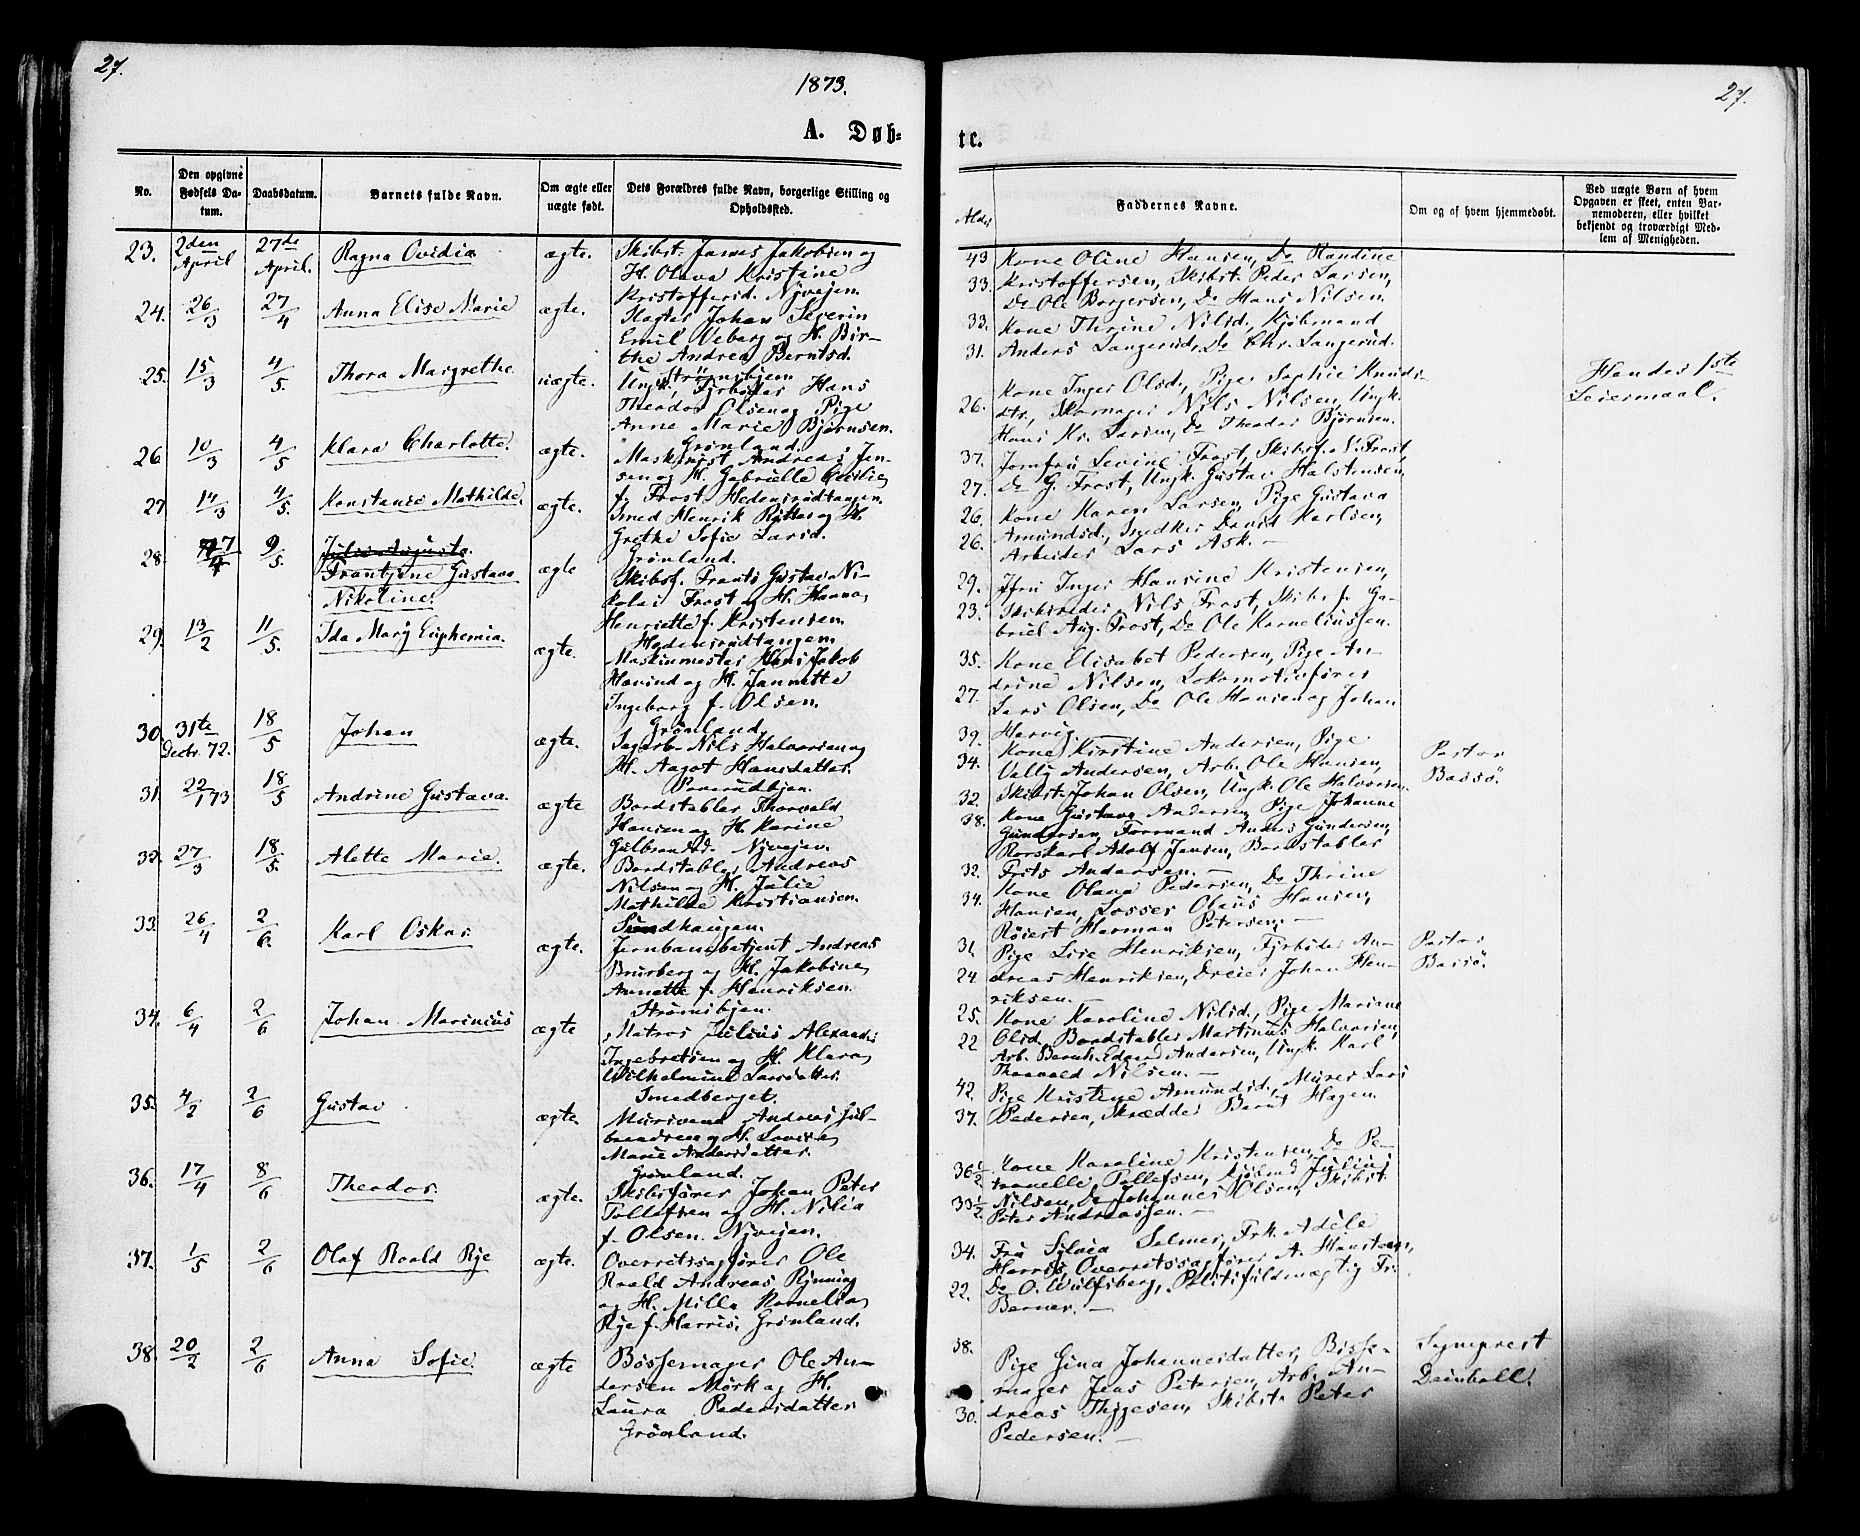 27.
1873.
A. Døb-
No.
Den opgivne Fødsels Da-tum.
Daabsdatum.
Barnets fulde Navn.
Om ægte eller uægte født.
Dets Forældres fulde Navn, borgerlige Stilling og Opholdssted.
23. 2den April 27de April. Ragna Ovidia ægte.
Skibst. James Jakobsen og
H. Olava Kristine
Kristoffersd. Nyvejen.
24. 26/3 27/4 Anna Elise Marie ægte.
Slagter Johan Severin
Emil Weberg og H. Bir-
the Andrea Berntsd.
Strømsbjen
25. 15/3 4/5 Thora Margrethe uægte.
Ungk. Fyrbøder Hans
Theodor Olsen og Pige
Anne Marie Bjørnsen.
Grønland.
26 10/3 4/5 Klara Charlotte. ægte.
Maskinist Andreas Jen-
sen og H. Gabrielle Cecilie
f. Frost Hedensrudtangen.
27 14/3 4/5 Konstance Mathilde. ægte.
Smed Henrik Ritter og H.
Grethe Sofie Larsd.
Grønland.
28. 7/4 9/5. Julie Augusta.
Frantzine Gustava
Nikoline. ægte
Skibsf. Frants Gustav Ni-
kolai Frost og H. Hanna
Henriette f. Kristensen.
Hedensrudtangen.
29. 13/2 11/5. Ida Mary Euphemia. ægte.
Maskinmester Hans Jakob
Hævind og H. Jannette
Ingeborg f. Olsen.
Grønland.
30. 31te Decbr. 72. 18/5 Johan ægte.
Sagarb. Nils Halvorsen og
H. Aagot Hansdatter.
31. 22/1 73 18/5 Andrine Gustava. ægte
Bordstabler Thorvald
Hansen og H. Karine
Gulbrandsd. Nyvejen.
32. 27/3 18/5. Alette Marie. ægte.
Bordstabler Andreas
Nilsen og H. Julie
Mathilde Kristiansen.
Sundhaugen.
33. 26/4 2/6. Karl Oskar. ægte.
Jernbanebetjent Andreas
Brurberg og H. Jakobine
Annette f. Henriksen.
Strømsbjen.
34. 6/4 2/6 Johan Marinius ægte
Matros Julius Alexander
Ingebretsen og H. Klara
Wilhelmine Larsdatter.
Smedberget.
35. 4/2 2/6 Gustav ægte.
Mursvend Andreas Gul-
brandsen og H. Lovise
Marie Andersdatter.
Grønland.
36. 17/4 8/6 Theodor. ægte.
Skibsfører Johan Peter
Tollefsen og H. Nilia
f. Olsen. Nyvejen.
37. 1/5 2/6 Olaf Roald Rye ægte.
Overretssagfører Ole
Roald Andreas Rynning
og H. Milla Kornelia
Rye f. Harris. Grønland.
38. 20/2 2/6 Anna Sofie. ægte
Bøssemager Ole An-
dersen Mörk og H.
Laura Pedersdatter
Grønland.
27.
te.
Alder
Faddernes Navne.
Om og af hvem hjemmedøbt.
Ved uægte Børn af hvem
Opgaven er skeet, enten Bar-
nemoderen, eller hvilket
bekjendt og troværdigt Med-
lem af Menigheden.
43 Kone Oline Hansen, Do Randine
33. Kristoffersen, Skibst. Peder Larsen,
Do Ole Borgersen, Do Hans Nilsen.
33. Kone Thrine Nilsd., Kjøbmand
31. Anders Langerud, Do Chr. Langerud.
Kone Inger Olsd., Pige Sophie Knuds-
26. dtr, Skomager Nils Nilsen, Ungk.
Hans Kr. Larsen, Do Theodor Bjørnsen.
Handes 1ste
Leiermaal.
37. Jomfru Levine Frost, Skibsf. N. Frost,
27. Do G. Frost, Ungk. Gustav Halstensen,
26. Kone Karen Larsen, Pige Gustava
26. Amundsd., Snedker David Karlsen,
Arbeider Lars Ask.
29. Jfru Inger Hansine Kristensen,
23. Skibsreder Nils Frost, Skibsf. Ga-
briel Aug. Frost, Do Ole Korneliussen.
35. Kone Elisabet Pedersen, Pige An-
27. drine Nilsen, Lokomotivfører
Lars Olsen, Do Ole Hansen og Johan
Hervig.
39. Kone Kirstine Andersen, Pige
34. Vally Andersen, Arb. Ole Hansen,
Skibst. Johan Olsen, Ungk. Ole Halvorsen.
Pastor
Bassö.
32. Kone Gustava Andersen, Pige Johanne
38. Gundersen, Formand Anders Gundersen,
Rorskarl Adolf Jensen, Bordstabler
Frits Andersen.
32. Kone Olava Pedersen, Do Thrine
34. Hansen, Losser Olaus Hansen,
Røiert Herman Petersen.
31. Pige Lise Henriksen, Fyrbøder An-
24 dreas Henriksen, Dreier Johan Hen-
riksen.
Pastor
Bassö.
25. Kone Karoline Nilsd., Pige Mariane
22 Olsd., Bordstabler Martinus Halvorsen,
Arb. Bernh. Edvard Andersen, Ungk. Karl
Thorvald Nilsen.
42. Pige Kristine Amundsd., Murer Lars
37. Pedersen, Skrædder Bernt Hagen.
36 1/2 Kone Karoline Kristensen, Do Pe-
tronelle Tollefsen, Kjøbmd Julius
33 1/2 Nilsen, Do Johannes Olsen, Skibst.
Peter Andreassen.
34. Fru Sylvia Selmer, Frk. Adèle
Harris, Overretssagfører A. Hansteen,
22. Do O. Wulfsberg, Politifuldmægtig Fr.
Berner.
38. Pige Gina Johannesdatter, Bösse-
mager Jens Petersen, Arb. An-
30. dreas Thygesen, Skibst. Peter
Pedersen.
Sognprest
Deinboll.